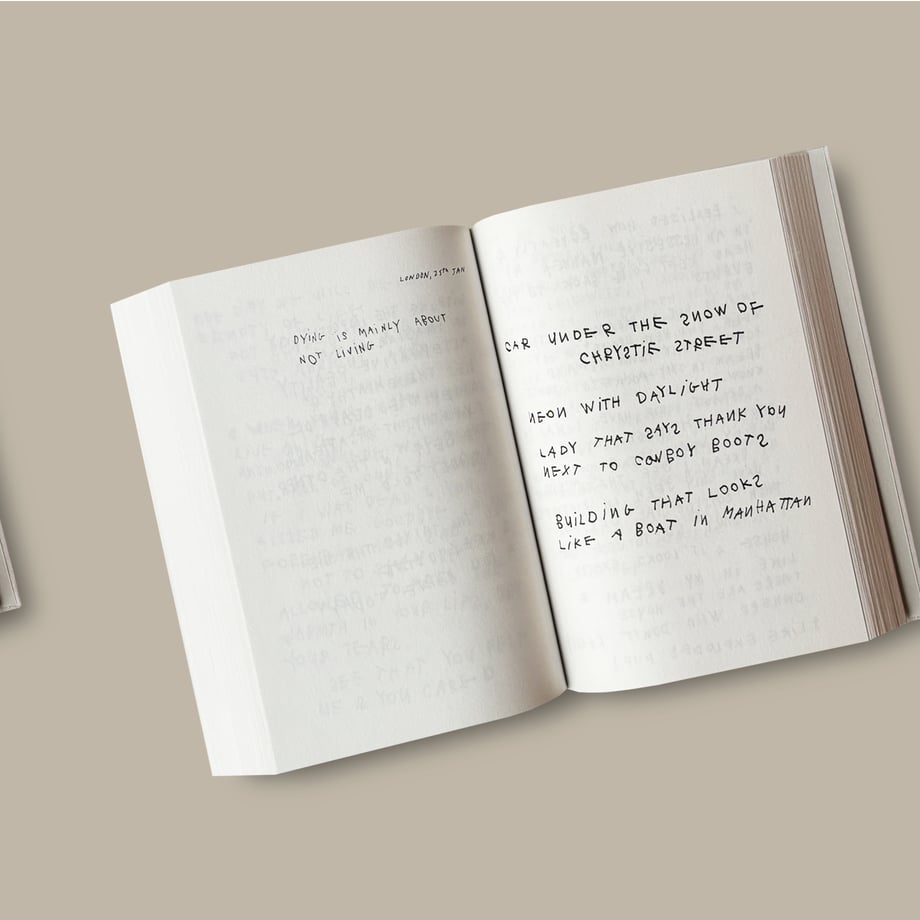 LONDON, 25th JAN
DYING iS MAiNLY ABOUT
NOT LiViNG
CAR UNDER THE SNOW OF
CHRYSTiE STREET
NEON WiTH DAYLiGHT
LADY THAT SAYS THANK YOU
NEXT TO COWBOY BOOTS
BUiLDiNG THAT LOOKS
LiKE A BOAT in MANHATTAN